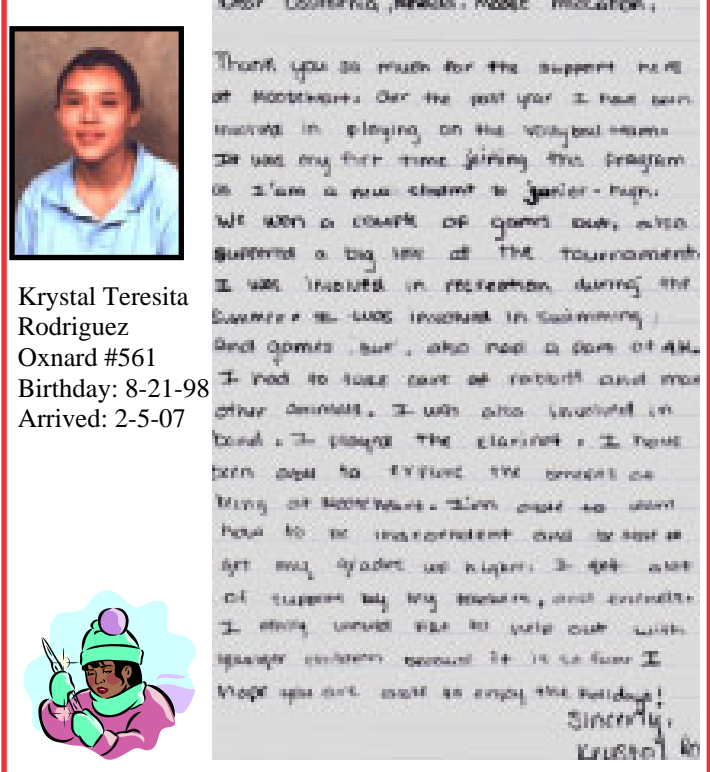 Krystal Teresita
Rodriguez
Oxnard #561
Birthday: 8-21-98
Arrived: 2-5-07
Dear California, Nevada, Moose
Thank you so much for the support here
at Mooseheart. Over the past year I have been
involved in playing on the volleyball team.
It was my first time joining this program
as I'am a new student to junior-high.
We won a couple of games but, also
suffered a big loss at the tournament.
I was involved in recreation during the
summer. I was involved in swimming,
and games, but, also had a part of 4H.
I had to take care of rabbits and
other animals. I was also involved in
band. I played the clarinet. I have
been able to the benefits of
being at Mooseheart. I'm able to learn
how to be independent and
get my grades up higher. I get alot
of support by my teachers, and
I really would like to help out with
younger children because it is so fun. I
hope you are able to enjoy the holidays!
Sincerly,
Krystal